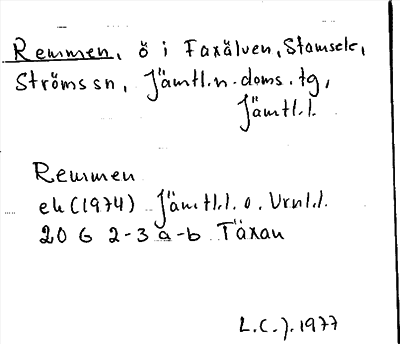 Remmen, ö i Faxälven, Stamsele,
Ströms sn, Jämtl.n.doms.tg,
Jämtl.l.
Remmen
ek (1974) Jämtl.l. o. Vrnl.l.
20 G 2-3 a-b Täxan
L.C.J. 1977